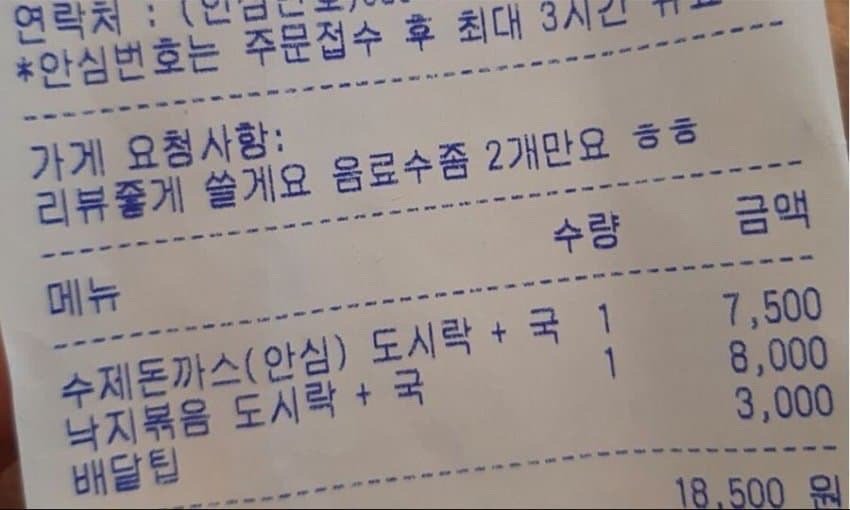 연락처 : (안심번호)
*안심번호는 주문접수 후 최대 3시간
가게 요청사항:
리뷰좋게 쓸게요 음료수좀 2개만요 ㅎㅎ
메뉴 수량 금액
수제돈까스(안심) 도시락 + 국 1 7,500
낙지볶음 도시락 + 국 1 8,000
배달팁 3,000
18,500 원